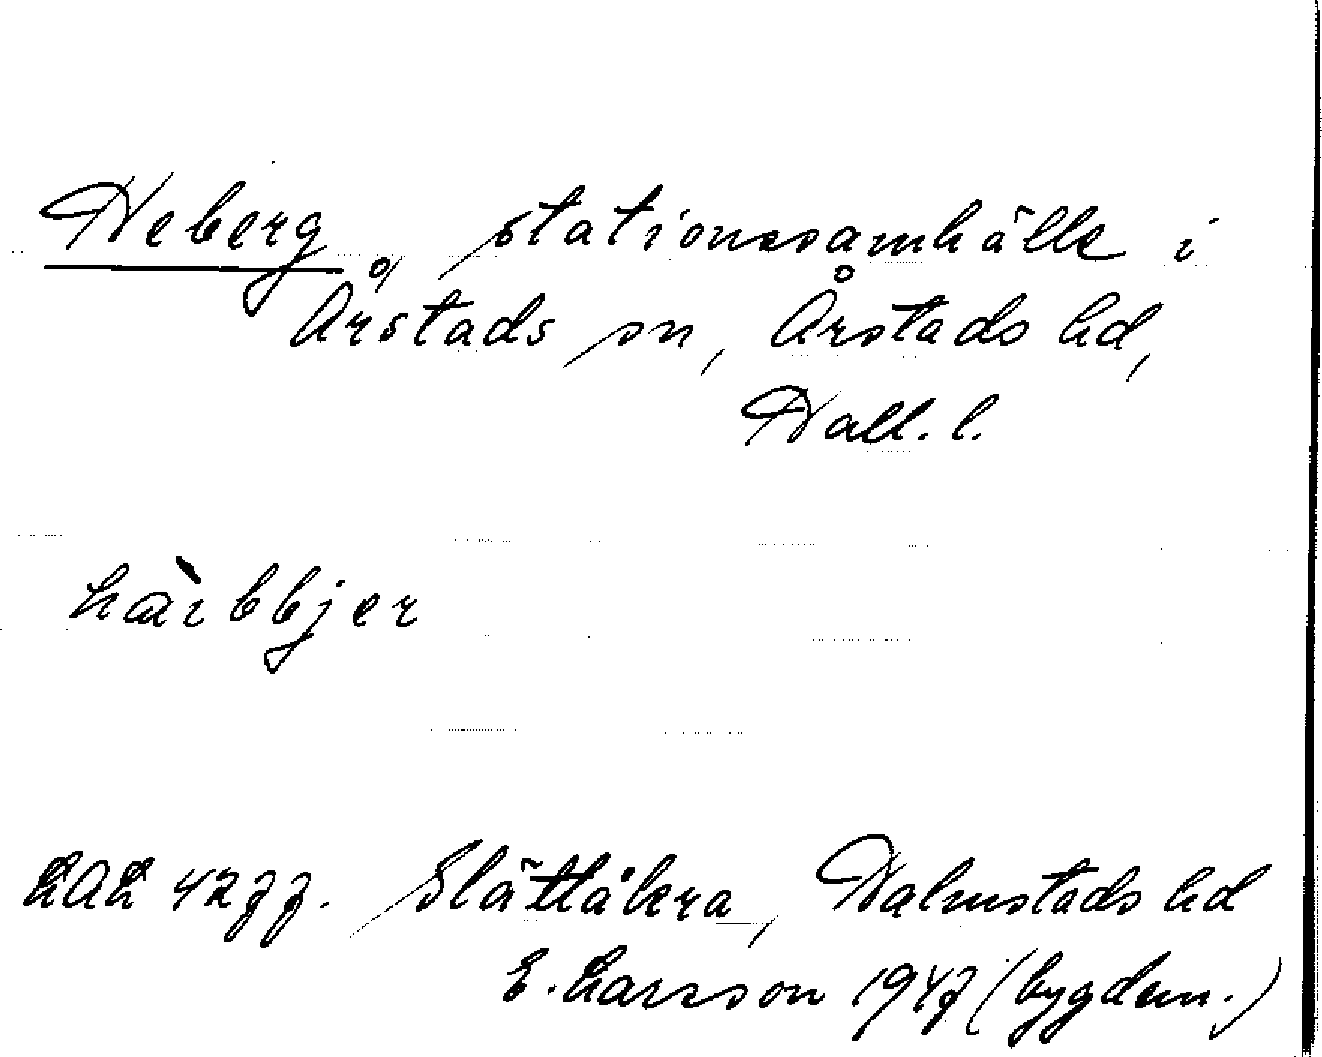 Heberg, stationssamhälle i
Årstads sn, Årstads hd,
Hall. l.
hàrbbjer
LAL 4277. Slättåkra, Halmstads hd
E. Larsson 1947 (bygdem.)